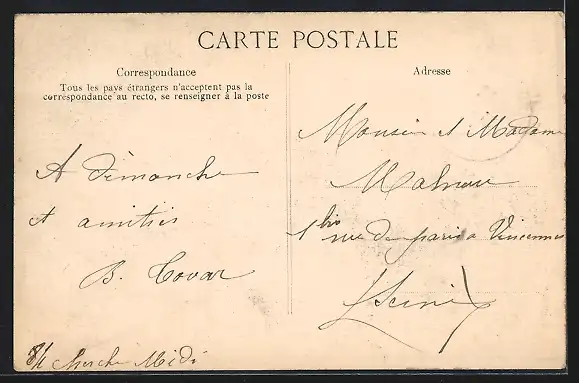 CARTE POSTALE
Correspondance
Tous les pays étrangers n'acceptent pas la
correspondance au recto, se renseigner à la poste
A dimanche
et amitiés
B. Tovar
Cherche Midi
Adresse
Monsieur et Madame
1 bis rue de paris a Vincennes
(Seine)